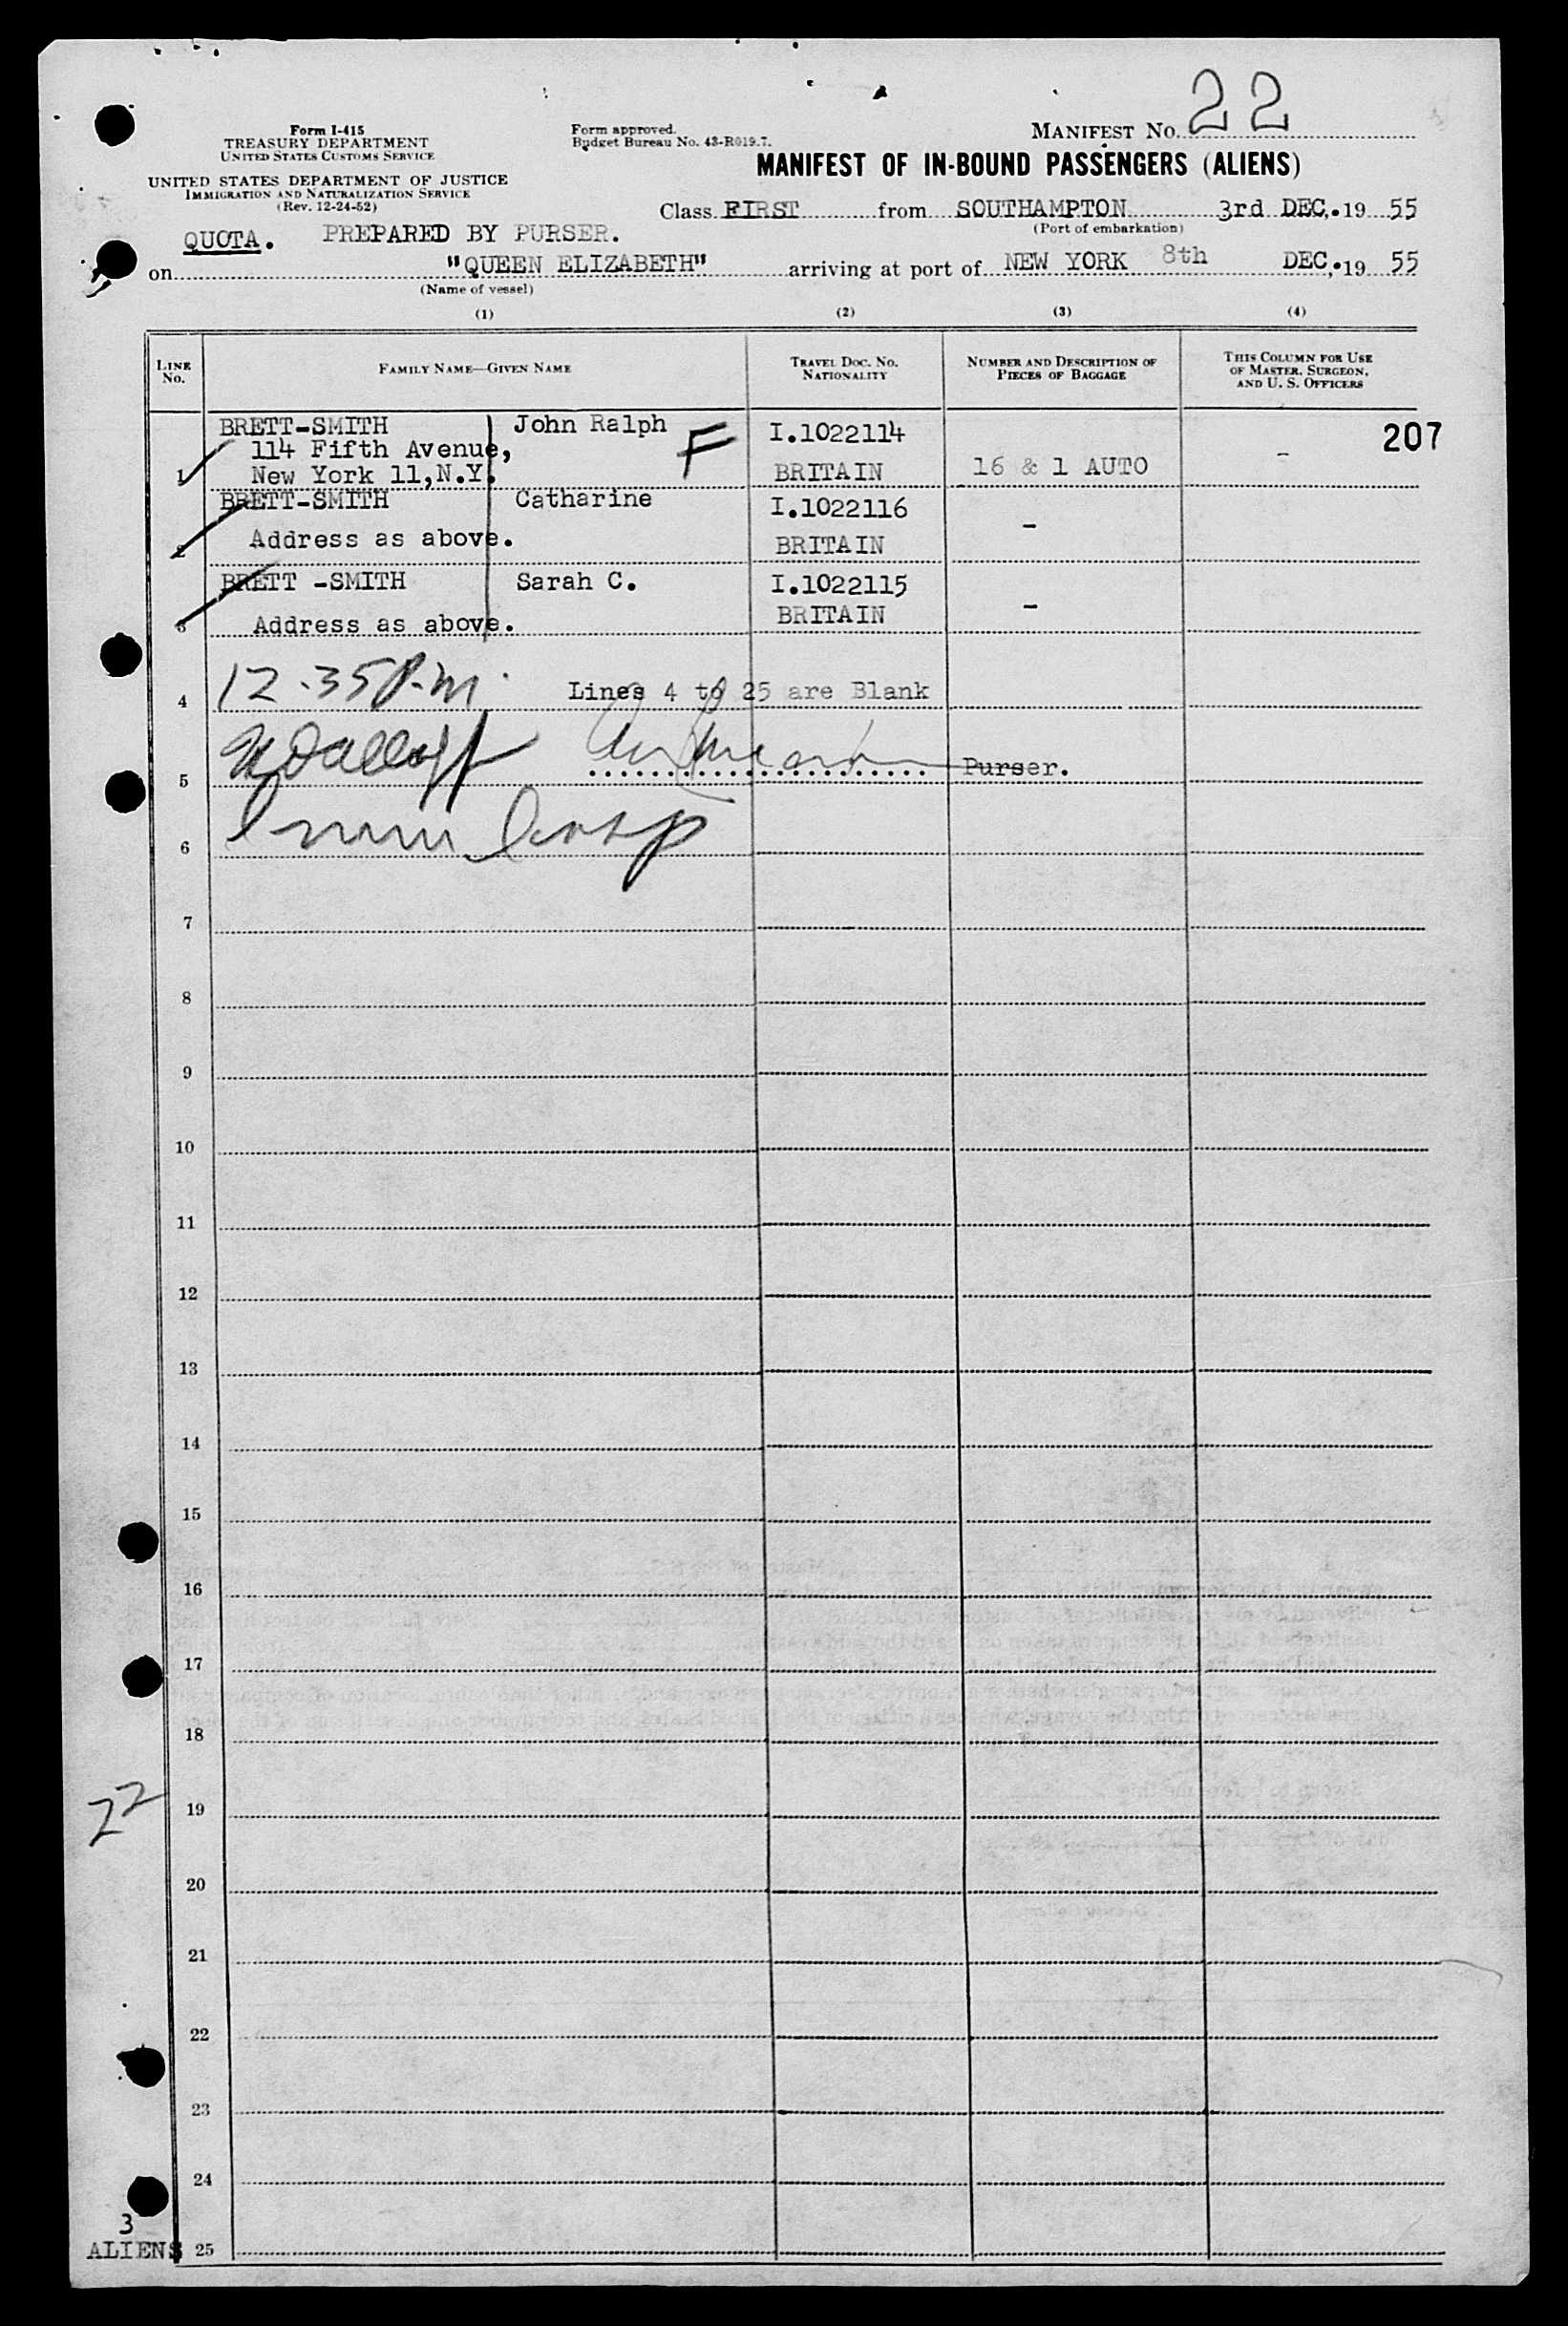 22
Form I-415
TREASURY DEPARTMENT
UNITED STATES CUSTOMS SERVICE
UNITED STATES DEPARTMENT OF JUSTICE
IMMIGRATION AND NATURALIZATION SERVICE
(Rev. 12-24-52)
Form approved.
Budget Bureau No. 43-R019.7.
MANIFEST No.
MANIFEST OF IN-BOUND PASSENGERS (ALIENS)
Class FIRST from SOUTHAMPTON 3rd DEC,.19 55
(Port of embarkation)
QUOTA. PREPARED BY PURSER.
on "QUEEN ELIZABETH" arriving at port of NEW YORK 8th DEC,.19 55
(Name of vessel)
(1) (2) (3) (4)
LINE No. FAMILY NAME—GIVEN NAME TRAVEL DOC. NO. NATIONALITY NUMBER AND DESCRIPTION OF PIECES OF BAGGAGE THIS COLUMN FOR USE OF MASTER, SURGEON, AND U. S. OFFICERS
BRETT-SMITH John Ralph F I.1022114 207
114 Fifth Avenue,
1 New York 11,N.Y. BRITAIN 16 & 1 AUTO -
BRETT-SMITH Catharine I.1022116
2 Address as above. BRITAIN -
BRETT -SMITH Sarah C. I.1022115
3 Address as above. BRITAIN -
4 12.35 P.m. Lines 4 to 25 are Blank
5 Purser.
6
7
8
9
10
11
12
13
14
15
16
17
18
22 19
20
21
22
23
24
3
ALIENS 25